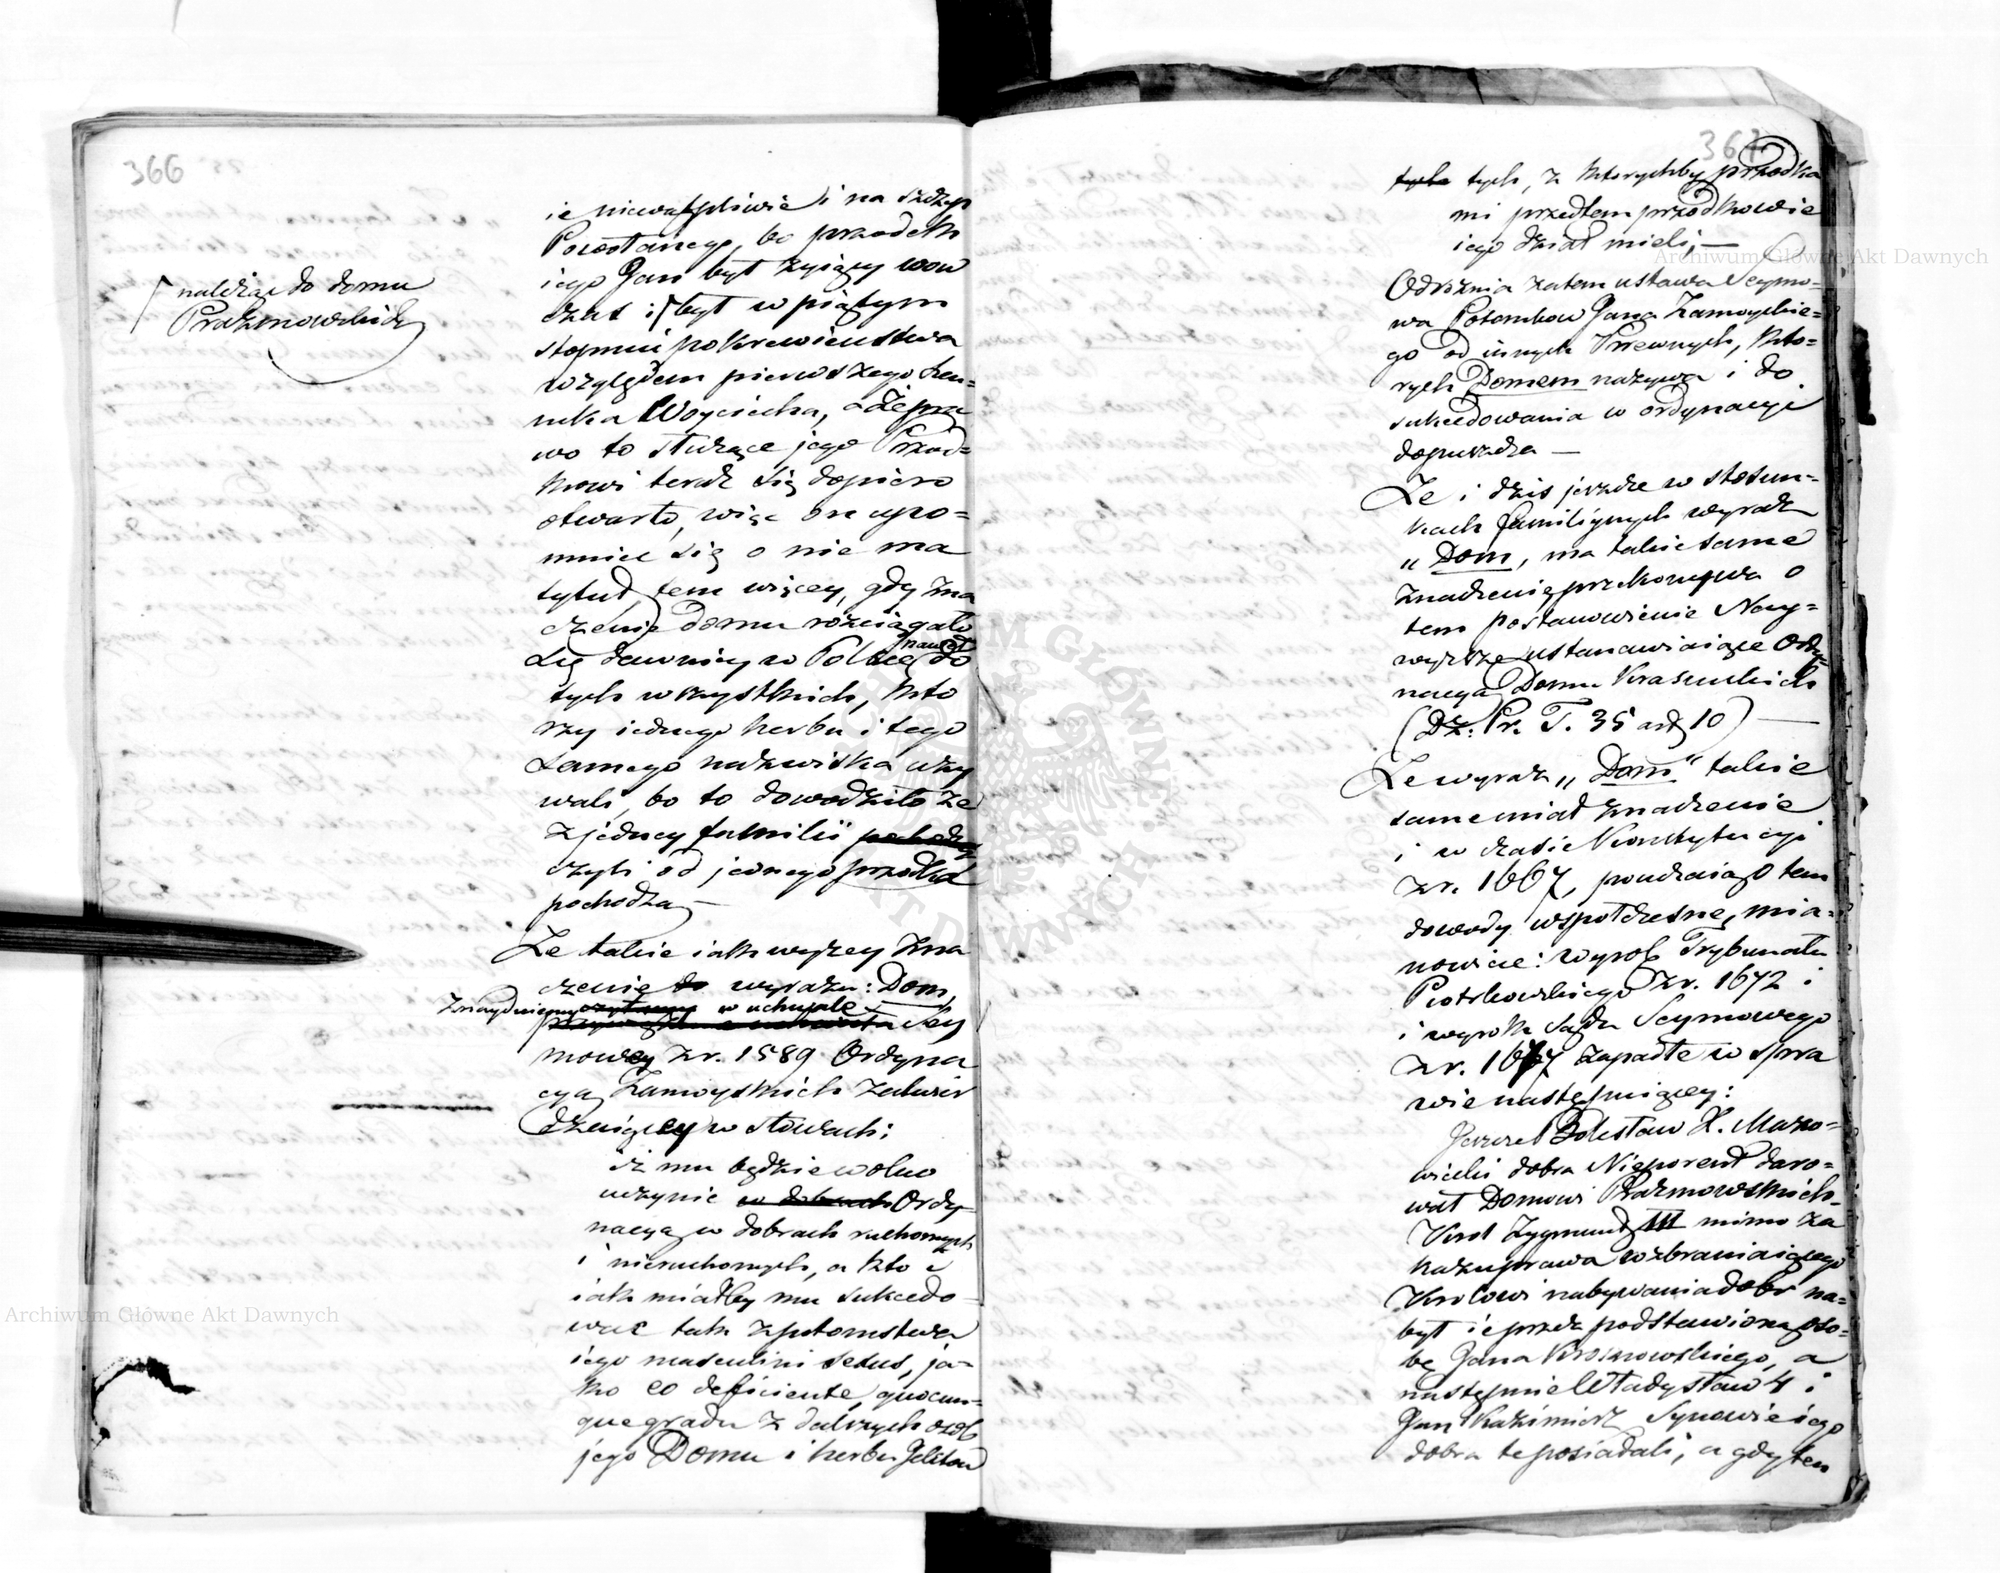 366
należąc do domu
Prażmowskich
ie niewątpliwie i na
Powołanego, bo przodek
iego Jan był żyiący wów
czas i był w piątym
stopniu pokrewieństwa
względem pierwszego
Woyciecha, a że pra
wo to służące jego Przod=
kowi teraz się dopiero
otwarło, więc on upo=
mnieć się o nie ma
tytuł, tem więcey, gdy zna
czenie domu rościągało
się dawniey w Polsce nawet do
tych wszystkich, któ
rzy iednego herbu i tego
samego nazwiska uży
wali, bo to dowodziło że
z jedney familii pochodzą
czyli od jednego przodka
pochodzą —
Że takie iak wyżey zna
czenie do wyrazu: Dom,
znayduiemy w uchwale
Sey
mowey z r. 1589 Ordyna
cyą Zamoyskich zatwier
dzaiącey w słowach:
iż mu będzie wolno
uczynić w dobrach Ordy
nacyą w dobrach ruchomych
i nieruchomych, a kto i
iak miałby mu sukcedo=
wać tak z potomstwa
iego masculini sexus, ja=
ko eo deficiente, quocun=
que gradu z dalszych osób
jego Domu i herbu Jelitów
367
tych, z którychby przodka
mi przedtem przodkowie
iego dział mieli, —
Odróżnia zatem ustawa Seymo=
wa Potomków Jana Zamoyskie=
go od innych Krewnych, któ=
rych Domem nazywa i do
sukcedowania w ordynacyi
dopuszcza —
Że i dziś jeszcze w stosun=
kach familiynych wyraz
„Dom, ma takie same
znaczenie przekonywa o
tem postanowienie Nay=
wyższe ustanawiaiące Ordy=
nacyą Domu Krasińskich
(Dz. Pr. T. 35 art 10) —
Że wyraz „Dom" takie
same miał znaczenie
i w czasie Konstytucyi
z r. 1667, pouczaią o tem
dowody współczesne, mia=
nowicie: wyrok Trybunału
Piotrkowskiego z r. 1672 i
i wyrok Sądu Seymowego
z r. 1677 zapadłe w spra
wie następuiącey:
Jeszcze Bolesław X. Mazo=
wiecki dobra Nieporent daro=
wał Domowi Prażmowskich.
Król Zygmunt III mimo za
kazu prawa wzbraniaiącego
Królowi nabywania dóbr na=
był ie przez podstawioną oso=
bę Jana Krosnowskiego, a
następnie Władysław 4 i
Jan Kaźimierz Synowie iego
dobra te posiadali, a gdy ten
Archiwum Główne Akt Dawnych
Archiwum Główne Akt Dawnych